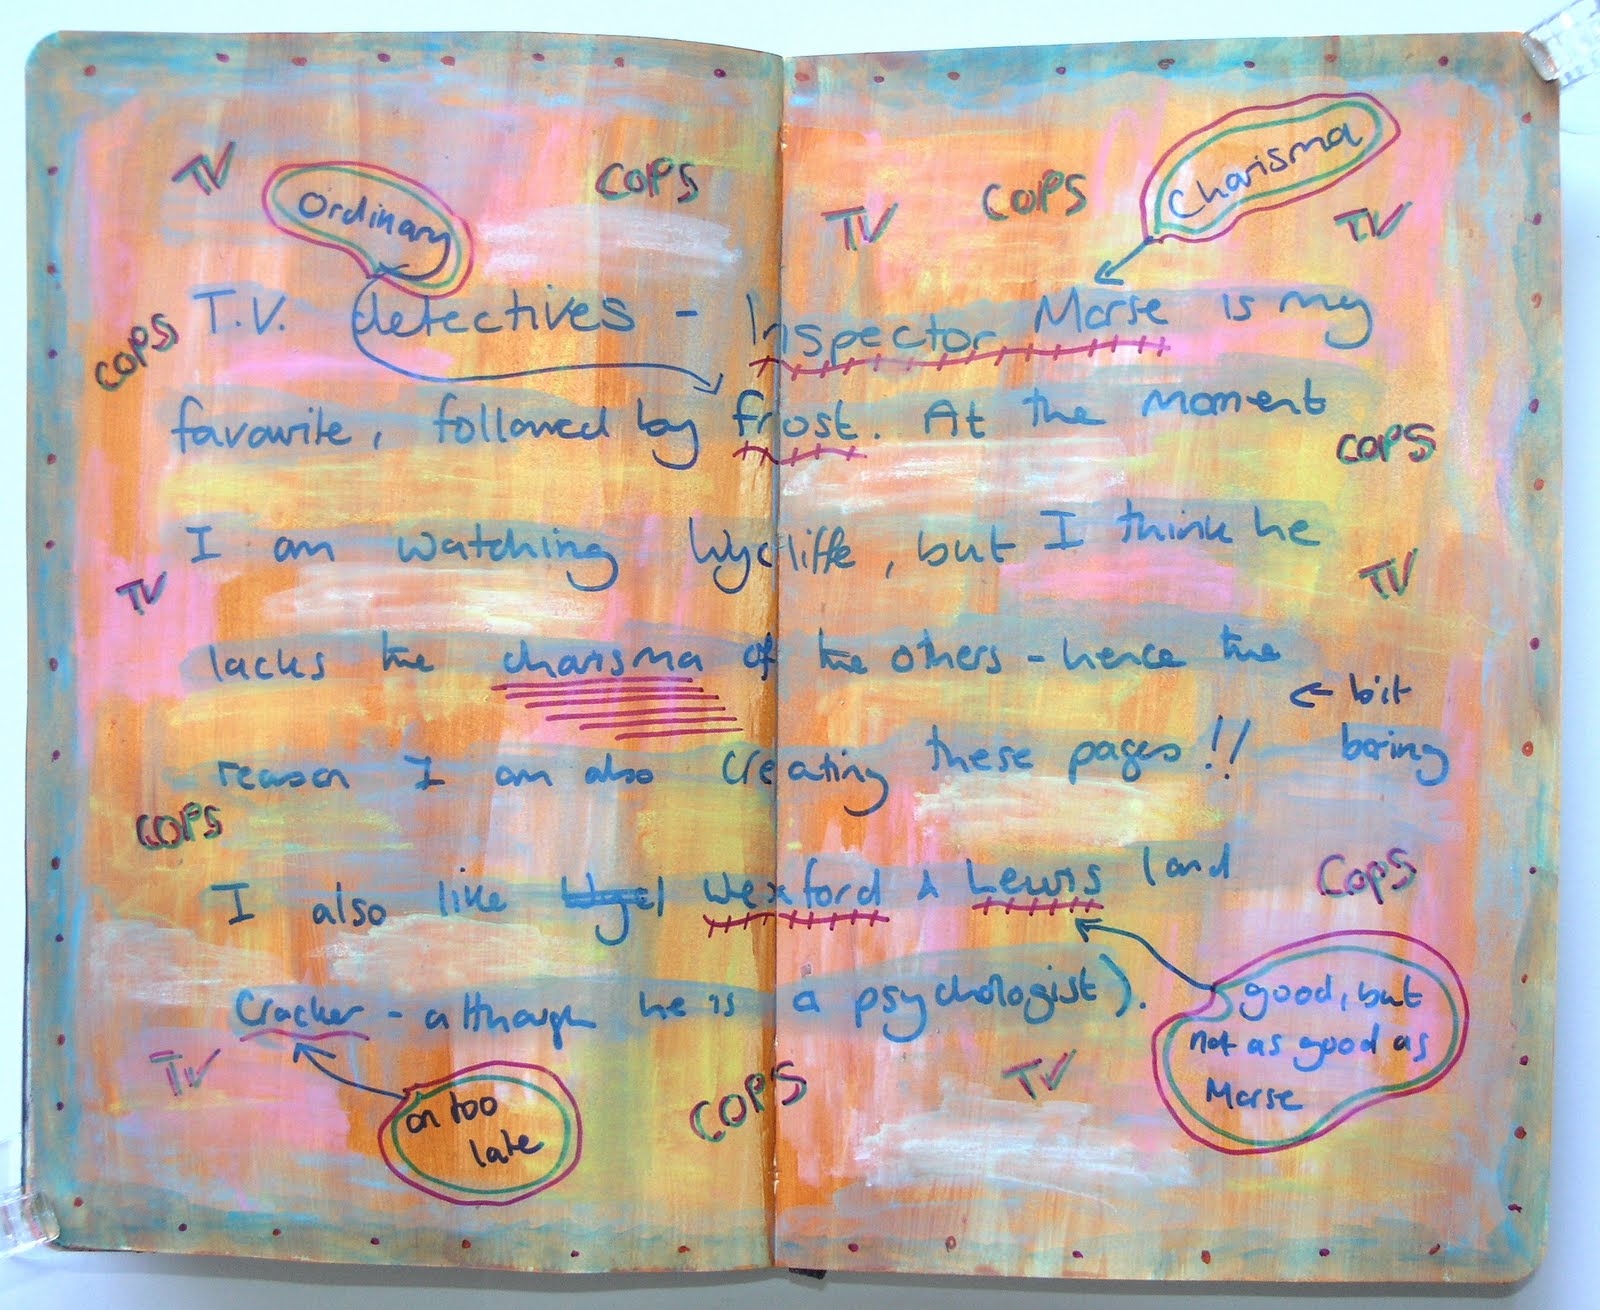 TV
COPS
COPS
Charisma
Ordinary
TV
TV
T.V. detectives - Inspector Morse is my
COPS
favourite, followed by Frost. At the moment
COPS
I am watching Wycliffe, but I think he
TV
TV
lacks the charisma of the others - hence the
← bit
reason I am also creating these pages!! boring
COPS
I also like Wexford & Lewis (and
COPS
Cracker - although he is a psychologist).
good, but
not as good as
Morse
TV
TV
COPS
on too
late